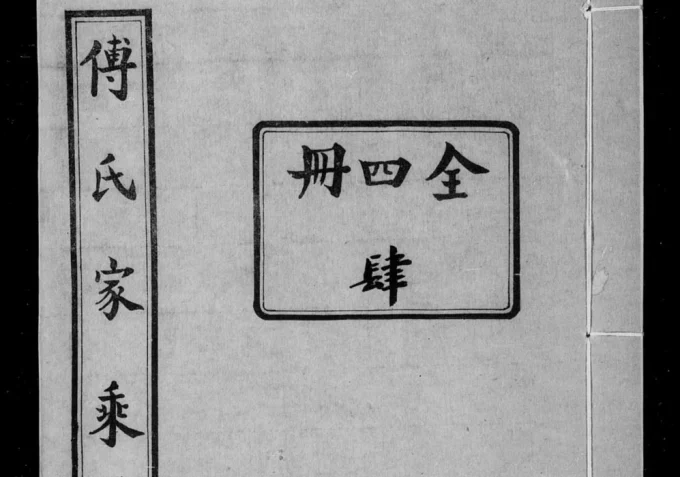 傅氏家乘
全四冊
肆